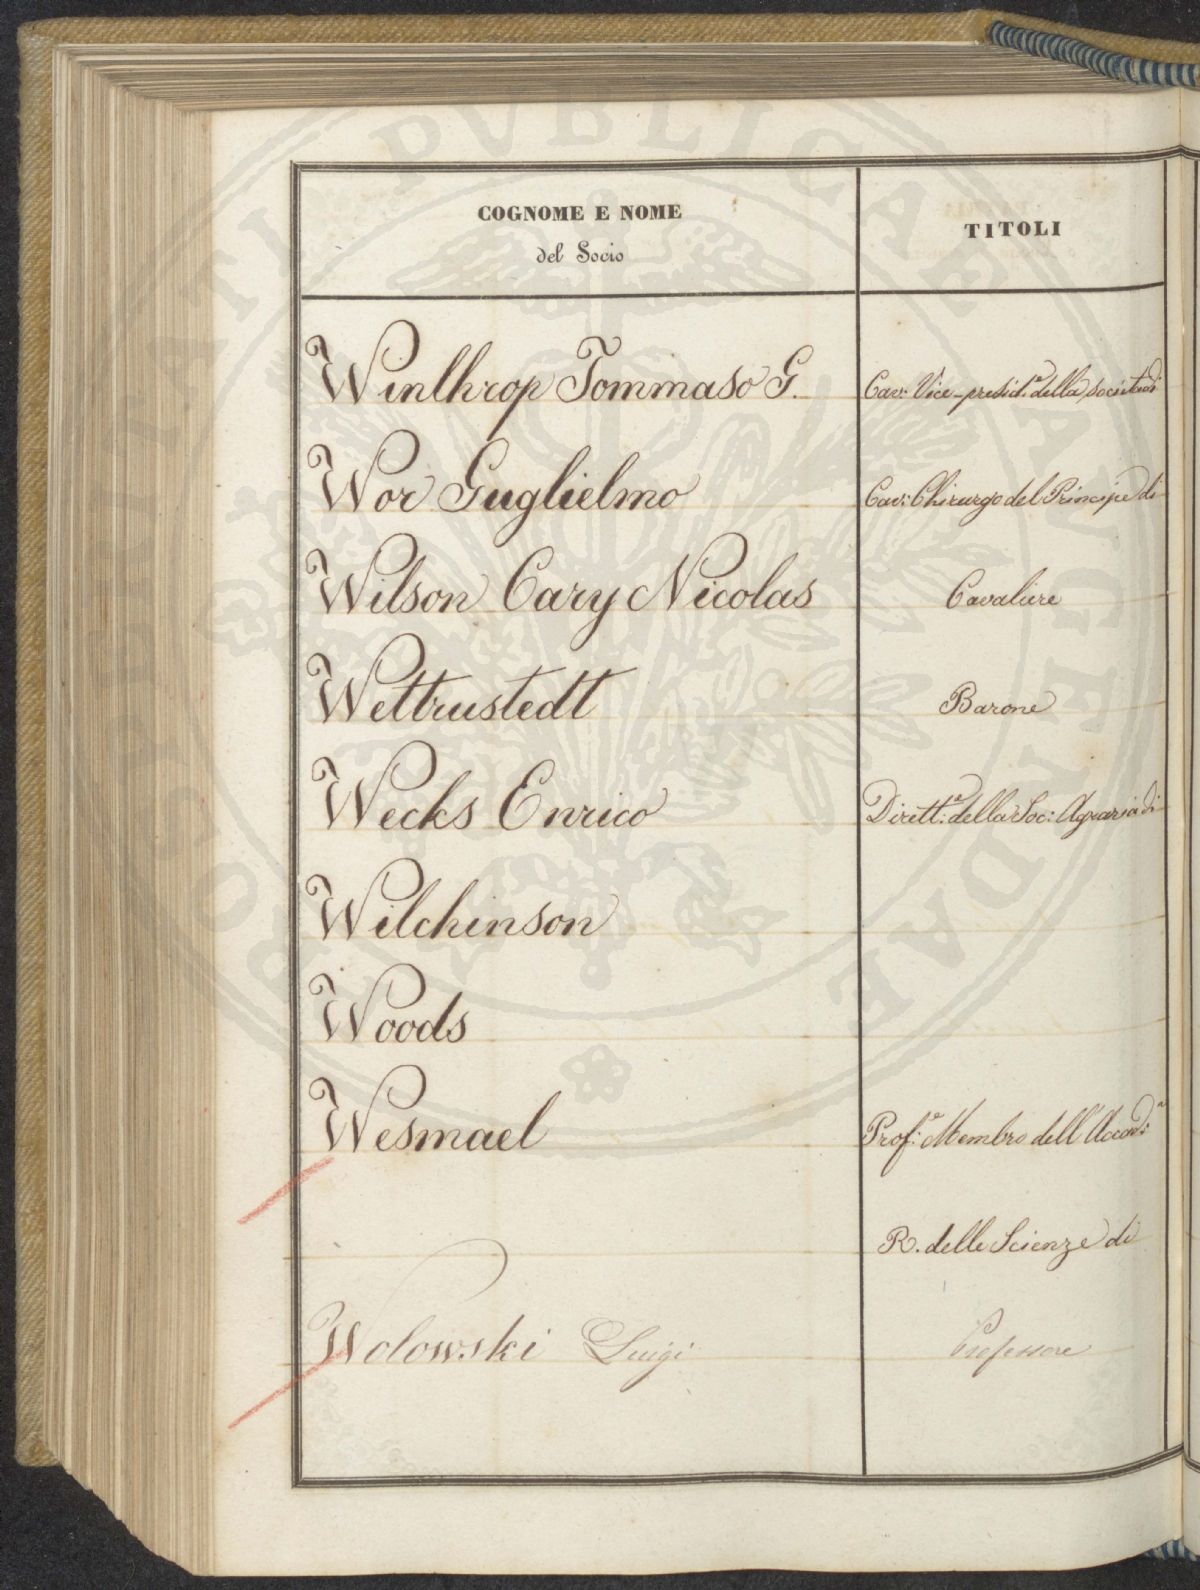 COGNOME E NOME
del Socio
TITOLI
Winthrop Tommaso G. Cav: Vice-presid.e della società di
Wor Guglielmo Cav: Chirurgo del Principe di
Wilson Cary Nicolas Cavaliere
Wettrustedt Barone
Wecks Enrico Dirett.e della Soc: Agraria di
Wilchinson
Woods
Wesmael Prof.e Membro dell'Accad:a
R. delle Scienze di
Wolowski Luigi Professore